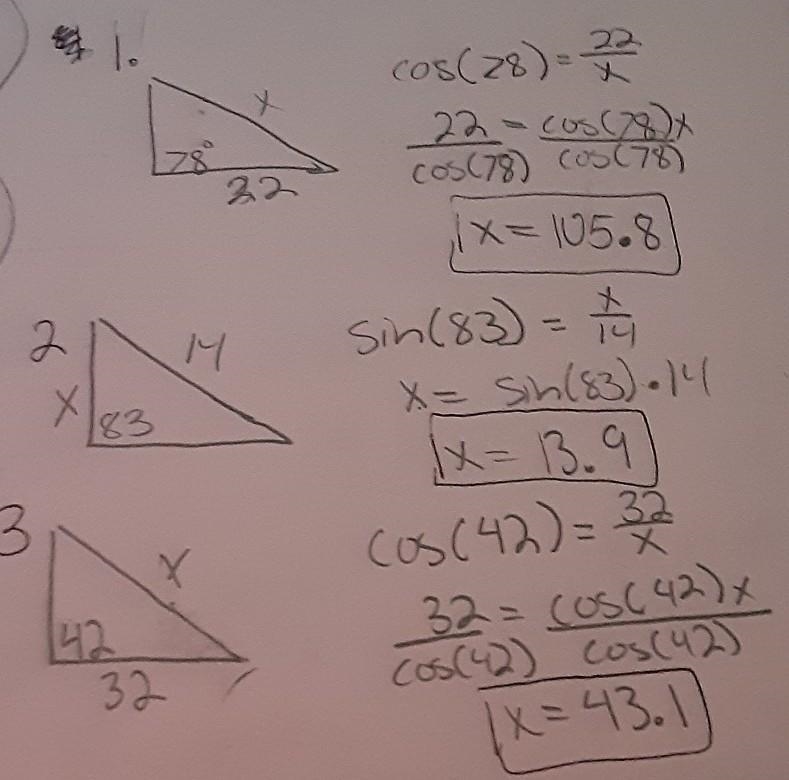 1.
x
78°
22
cos(78) = 22/x
22/cos(78) = cos(78)x/cos(78)
x = 105.8
2
14
x
83
sin(83) = x/14
x = sin(83)·14
x = 13.9
3
x
42
32
cos(42) = 32/x
32/cos(42) = cos(42)x/cos(42)
x = 43.1